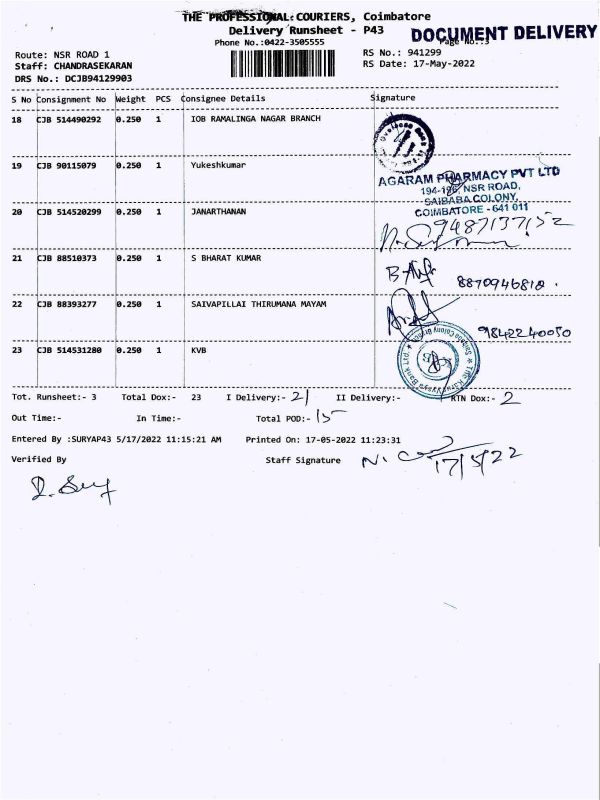 THE PROFESSIONAL COURIERS, Coimbatore
Delivery Runsheet - P43
DOCUMENT DELIVERY
Phone No.:0422-3505555
Page No.:3
Route: NSR ROAD 1
RS No.: 941299
Staff: CHANDRASEKARAN
RS Date: 17-May-2022
DRS No.: DCJB94129903
S No Consignment No Weight PCS Consignee Details Signature
18 CJB 514490292 0.250 1 IOB RAMALINGA NAGAR BRANCH
19 CJB 90115079 0.250 1 Yukeshkumar
AGARAM PHARMACY PVT LTD
194-196, NSR ROAD,
SAIBABA COLONY,
COIMBATORE - 641 011
20 CJB 514520299 0.250 1 JANARTHANAN
9487137152
21 CJB 88510373 0.250 1 S BHARAT KUMAR
8870946818
22 CJB 88393277 0.250 1 SAIVAPILLAI THIRUMANA MAYAM
9842240050
23 CJB 514531280 0.250 1 KVB
Tot. Runsheet:- 3 Total Dox:- 23 I Delivery:- 21 II Delivery:- RTN Dox:- 2
Out Time:- In Time:- Total POD:- 15
Entered By :SURYAP43 5/17/2022 11:15:21 AM Printed On: 17-05-2022 11:23:31
Verified By Staff Signature
17/5/22